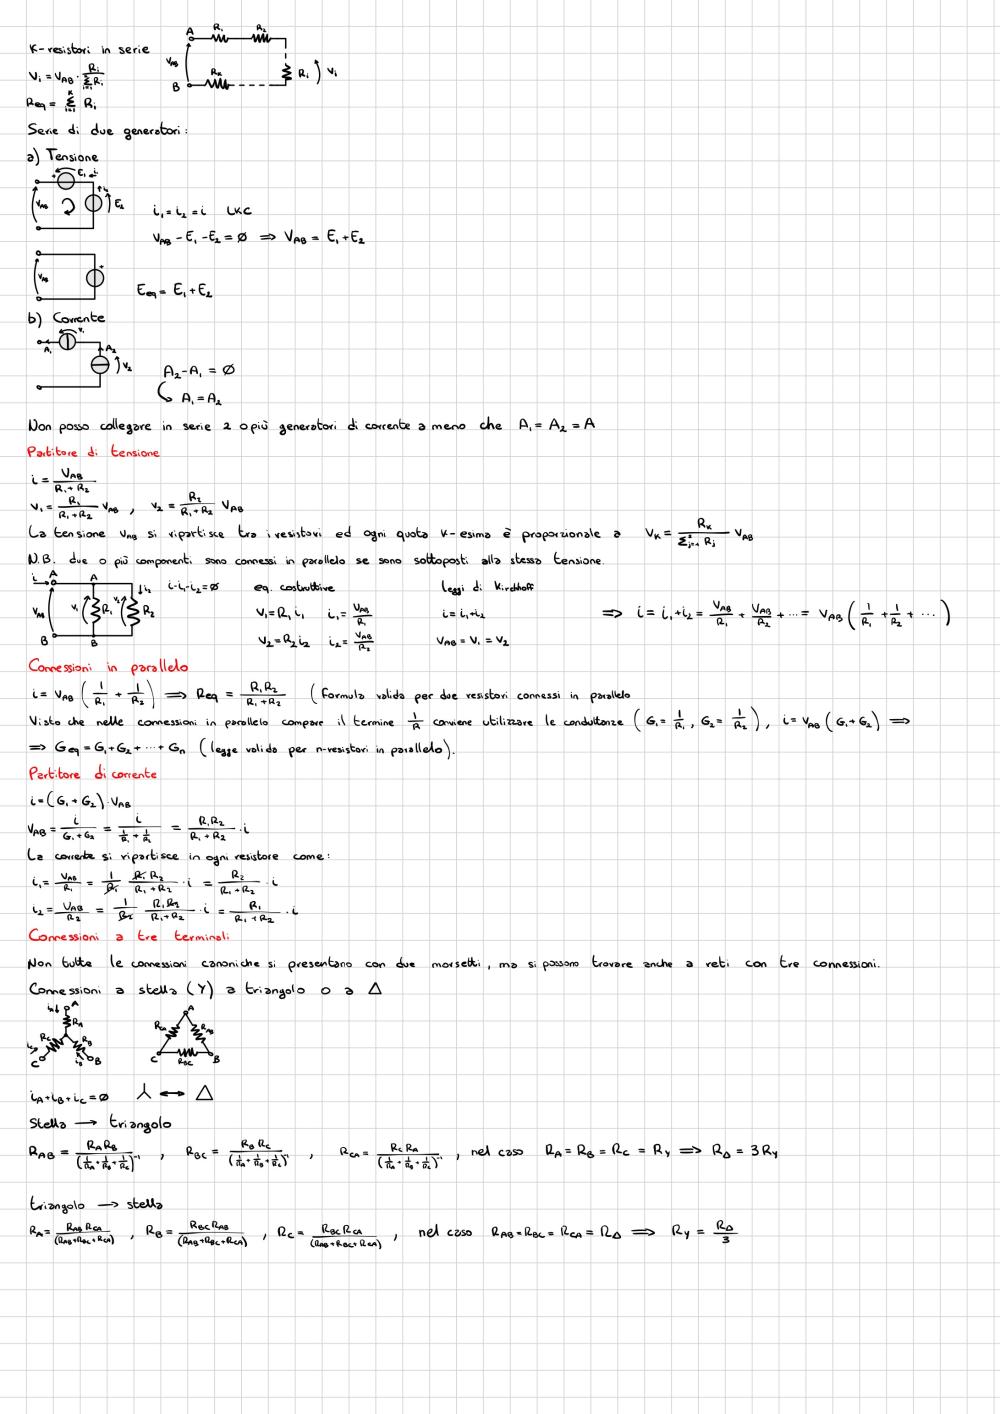 K-resistori in serie
A R₁ R₂
V_AB Rₖ Rᵢ Vᵢ
B
Vᵢ = V_AB · Rᵢ / Σᵢ₌₁ᴷ Rᵢ
Req = Σᵢ₌₁ᴷ Rᵢ
Serie di due generatori:
a) Tensione
+ E₁ i₁
V_AB + i₂ E₂
i₁ = i₂ = i LKC
V_AB - E₁ - E₂ = ∅ ⇒ V_AB = E₁ + E₂
V_AB +
Eeq = E₁ + E₂
b) Corrente
V₁
A₁ A₂ V₂
A₂ - A₁ = ∅
↳ A₁ = A₂
Non posso collegare in serie 2 o più generatori di corrente a meno che A₁ = A₂ = A
Partitore di tensione
i = V_AB / (R₁ + R₂)
V₁ = R₁ / (R₁ + R₂) V_AB , V₂ = R₂ / (R₁ + R₂) V_AB
La tensione V_AB si ripartisce tra i resistori ed ogni quota K-esima è proporzionale a Vₖ = Rₖ / Σⱼ₌₁ Rⱼ V_AB
N.B. due o più componenti sono connessi in parallelo se sono sottoposti alla stessa tensione.
i A A i₂ i-i₁-i₂=∅ eq. costruttive leggi di Kirchhoff
V_AB V₁ R₁ V₂ R₂ V₁ = R₁ i₁ i₁ = V_AB / R₁ i = i₁+i₂ ⇒ i = i₁+i₂ = V_AB / R₁ + V_AB / R₂ + ··· = V_AB ( 1/R₁ + 1/R₂ + ··· )
B B V₂ = R₂ i₂ i₂ = V_AB / R₂ V_AB = V₁ = V₂
Connessioni in parallelo
i = V_AB ( 1/R₁ + 1/R₂ ) ⇒ Req = R₁R₂ / (R₁ + R₂) ( Formula valida per due resistori connessi in parallelo
Visto che nelle connessioni in parallelo compare il termine 1/R conviene utilizzare le conduttanze ( G₁ = 1/R₁ , G₂ = 1/R₂ ), i = V_AB ( G₁ + G₂ ) ⇒
⇒ Geq = G₁ + G₂ + ··· + Gn ( legge valida per n-resistori in parallelo ).
Partitore di corrente
i = ( G₁ + G₂ ) · V_AB
V_AB = i / (G₁ + G₂) = i / (1/R₁ + 1/R₂) = R₁R₂ / (R₁ + R₂) · i
La corrente si ripartisce in ogni resistore come:
i₁ = V_AB / R₁ = 1/R₁ R₁R₂ / (R₁ + R₂) · i = R₂ / (R₁ + R₂) · i
i₂ = V_AB / R₂ = 1/R₂ R₁R₂ / (R₁ + R₂) · i = R₁ / (R₁ + R₂) · i
Connessioni a tre terminali
Non tutte le connessioni canoniche si presentano con due morsetti, ma si possono trovare anche a reti con tre connessioni.
Connessioni a stella (Y) a triangolo o a Δ
i_A A R_A
i_C R_C R_B i_B
C B
A
R_CA R_AB
C R_BC B
i_A + i_B + i_C = ∅ ⅄ ↔ △
Stella → triangolo
R_AB = R_A R_B / (1/R_A + 1/R_B + 1/R_C)⁻¹ , R_BC = R_B R_C / (1/R_A + 1/R_B + 1/R_C)⁻¹ , R_CA = R_C R_A / (1/R_A + 1/R_B + 1/R_C)⁻¹ , nel caso R_A = R_B = R_C = R_Y ⇒ R_Δ = 3R_Y
triangolo → stella
R_A = R_AB R_CA / (R_AB + R_BC + R_CA) , R_B = R_BC R_AB / (R_AB + R_BC + R_CA) , R_C = R_BC R_CA / (R_AB + R_BC + R_CA) , nel caso R_AB = R_BC = R_CA = R_Δ ⇒ R_Y = R_Δ / 3